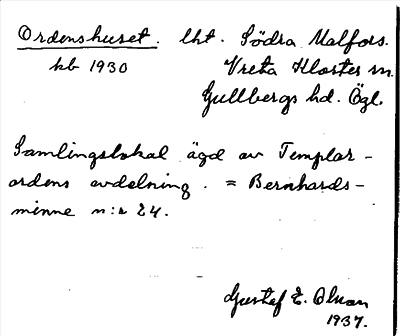 Ordenshuset. lht. Södra Malfors.
kb 1930 Vreta Kloster sn.
Gullbergs hd. Ögl.
Samlingslokal ägd av Templar-
ordens avdelning. = Bernhards-
minne n:r 24.
Gustaf E. Olson
1937.